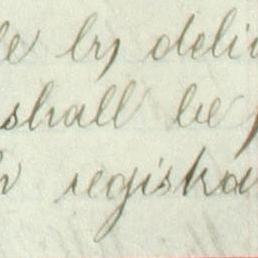 le by deli
shall be
registra